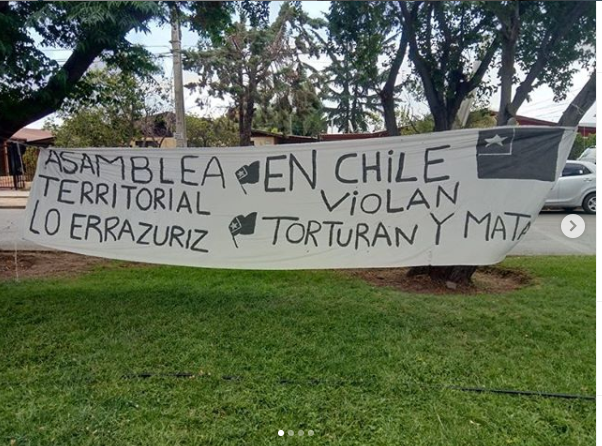 ASAMBLEA
TERRITORIAL
LO ERRAZURIZ
EN CHILE
VIOLAN
TORTURAN Y MATA